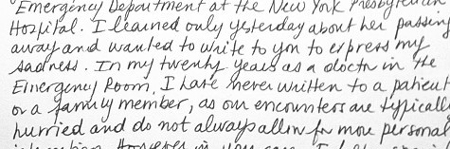 Emergency Department at the New York Presbyterian
Hospital. I learned only yesterday about her passing
away and wanted to write to you to express my
sadness. In my twenty years as a doctor in the
Emergency Room, I have never written to a patient
or a family member, as our encounters are typically
hurried and do not always allow for more personal
interaction. However, in your case, I